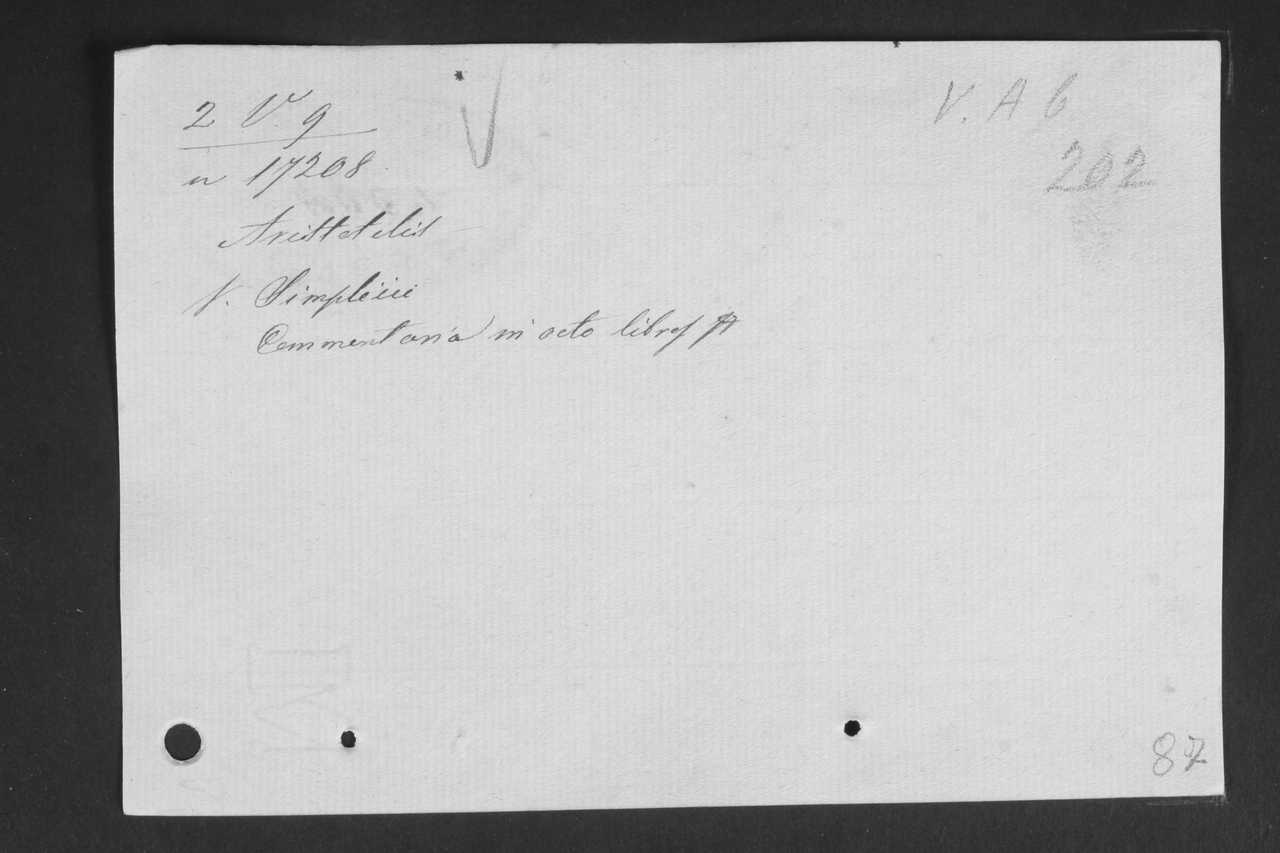 2 Vᵃ 9
V. A 6
n 17208
202
Aristotelis
V. Simplicii
Commentaria in octo libros A
87